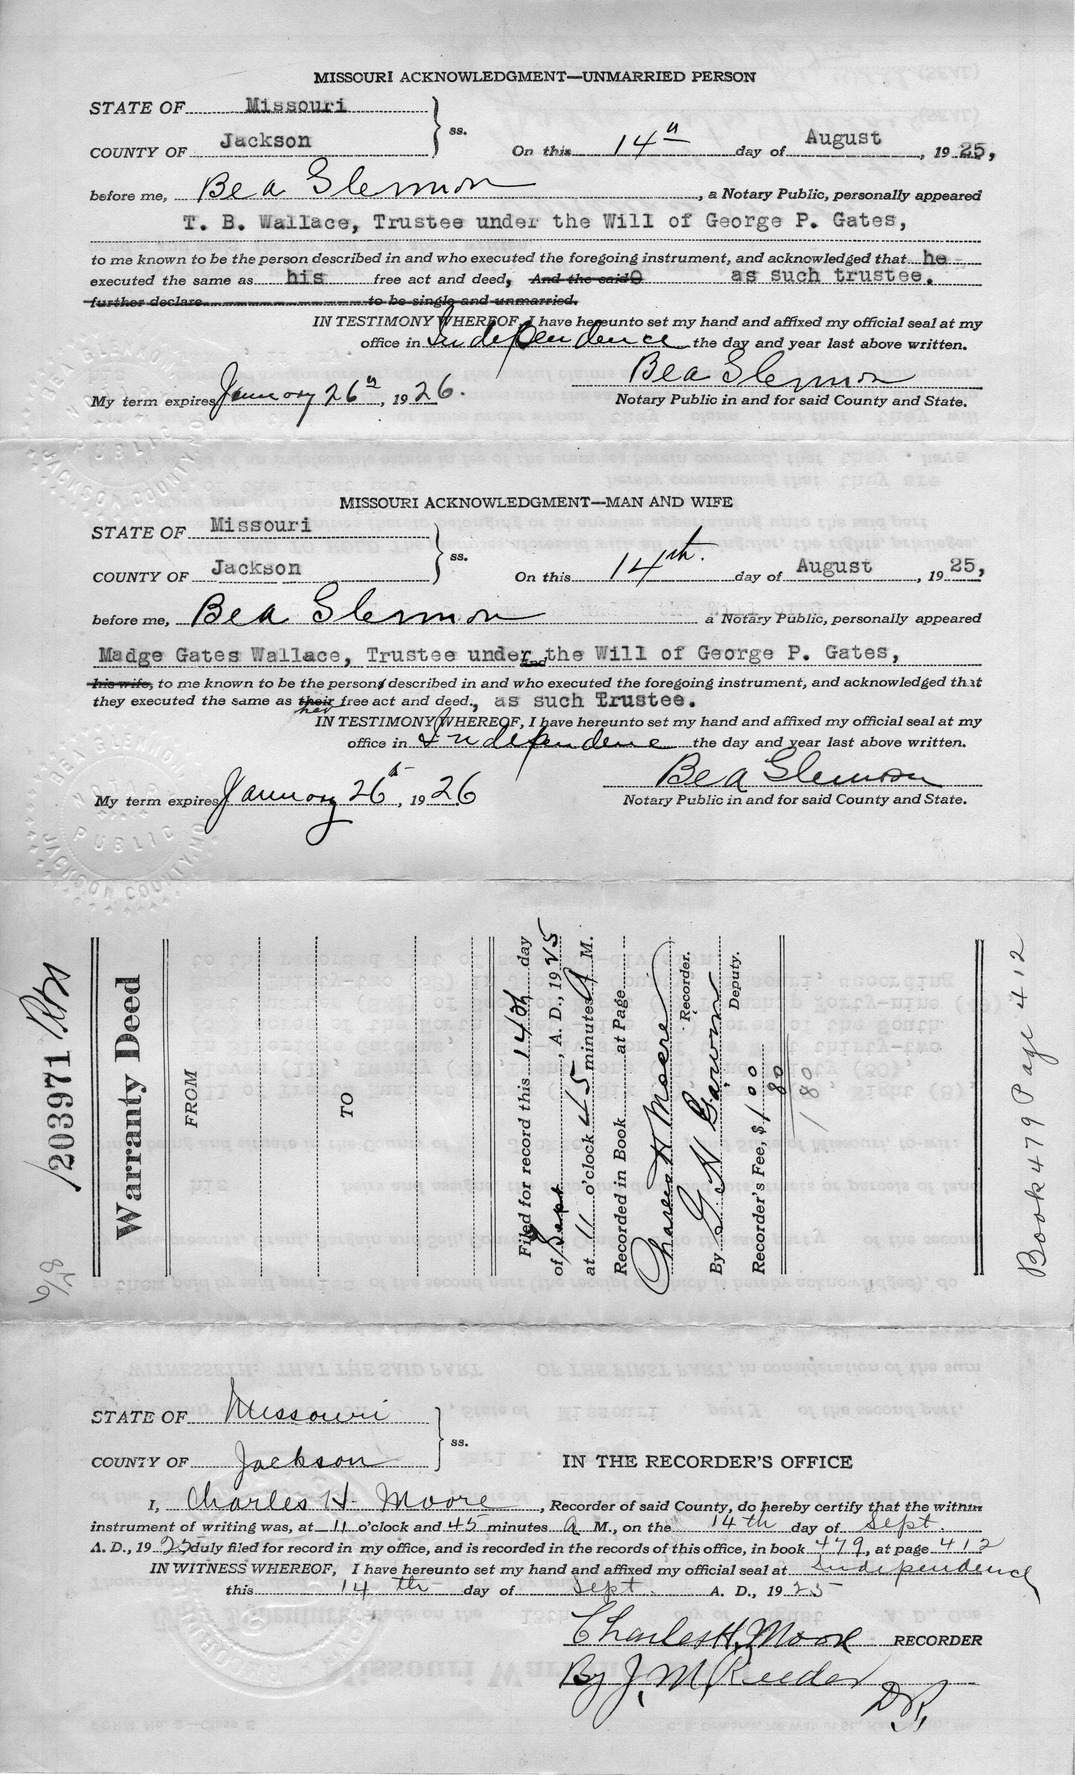 MISSOURI ACKNOWLEDGMENT—UNMARRIED PERSON
STATE OF Missouri
ss.
COUNTY OF Jackson On this 14th day of August, 1925,
before me, Bea Glennon, a Notary Public, personally appeared
T. B. Wallace, Trustee under the Will of George P. Gates,
to me known to be the person described in and who executed the foregoing instrument, and acknowledged that he
executed the same as his free act and deed, And the said as such trustee.
further declare to be single and unmarried.
IN TESTIMONY WHEREOF, I have hereunto set my hand and affixed my official seal at my
office in Independence the day and year last above written.
Bea Glennon
My term expires January 26th, 1926. Notary Public in and for said County and State.
BEA GLENNON
NOTARY
PUBLIC
JACKSON COUNTY, MO.
MISSOURI ACKNOWLEDGMENT—MAN AND WIFE
STATE OF Missouri
ss.
COUNTY OF Jackson On this 14th. day of August, 1925,
before me, Bea Glennon a Notary Public, personally appeared
Madge Gates Wallace, Trustee under the Will of George P. Gates,
and
his wife, to me known to be the persons described in and who executed the foregoing instrument, and acknowledged that
they executed the same as their free act and deed., as such Trustee.
her
IN TESTIMONY WHEREOF, I have hereunto set my hand and affixed my official seal at my
office in Independence the day and year last above written.
Bea Glennon
My term expires January 26th, 1926 Notary Public in and for said County and State.
BEA GLENNON
NOTARY
PUBLIC
JACKSON COUNTY, MO.
203971
Warranty Deed
FROM
TO
Filed for record this 14th day
of Sept, A. D., 1925
at 11 o'clock 45 minutes A M.
Recorded in Book at Page
Charles H Moore
Recorder.
By G. H. Garvin
Deputy.
Recorder's Fee, $1 00
80
1 80
Book 479 Page 412
STATE OF Missouri
ss.
COUNTY OF Jackson IN THE RECORDER'S OFFICE
I, Charles H. Moore, Recorder of said County, do hereby certify that the within
instrument of writing was, at 11 o'clock and 45 minutes A M., on the 14th day of Sept.
A. D., 1925, duly filed for record in my office, and is recorded in the records of this office, in book 479, at page 412
IN WITNESS WHEREOF, I have hereunto set my hand and affixed my official seal at Independence
this 14th day of Sept. A. D., 1925
Charles H. Moore RECORDER
By J. M. Reeder